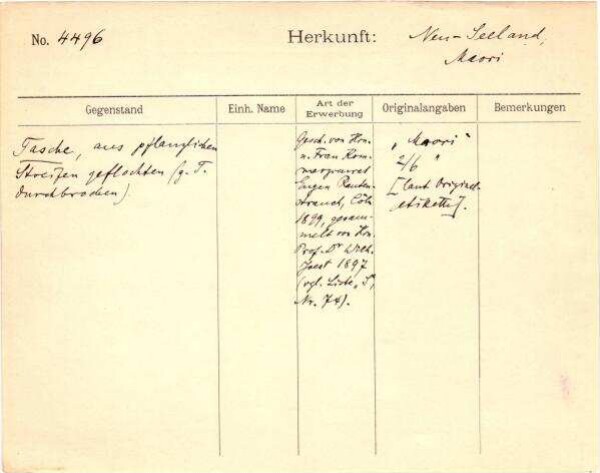 No. 4496
Herkunft: Neu-Seeland,
Maori
Gegenstand
Einh. Name
Art der
Erwerbung
Originalangaben
Bemerkungen
Tasche, aus pflanzlichen
Streifen geflochten (z. T.
durchbrochen)
Gesch. von Hrn.
u. Frau Kom-
merzienrat
Eugen Rauten-
strauch, Cöln
1899, gesam-
melt von Hrn.
Prof. Dr Wilh.
Joest 1897
(vgl. Liste
Nr. 74).
„Maori"
2/6 "
[laut Original-
etikette].